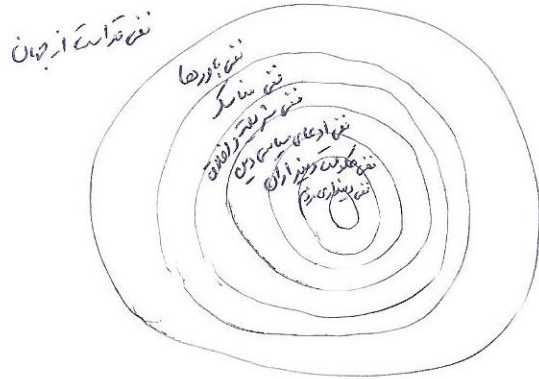 نفی قداست از جهان
نفی باورها
نفی مناسک
نفی شریعت و اخلاق
نفی ادعای سیاسی دین
نفی حکومت دینداران
نفی دینداری